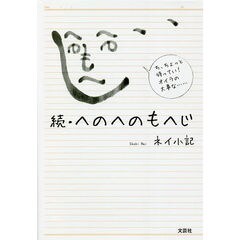 へのへ
の も
へ
ち、ちょっと
待ってい!
オイラの
大事な……
続・へのへのもへじ
Shoki Nei
ネイ小記
文芸社